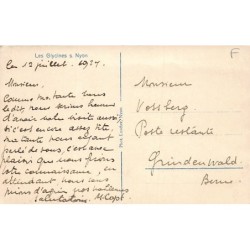 Les Glycines s. Nyon
Le 13 juillet. 1937.
Monsieur,
Comme ma tante vous
dit, nous serions heureux
d'avoir votre visite aussi
si c'est encore assez tôt,
ma tante nous ayant
parlé de vous, c'est avec
plaisir que nous ferons
votre connaissance, en
attendant, nous vous
prions d'agréer nos
Salutations.
Monsieur
Vossberg
Poste restante
Grindenwald.
Berne.
F